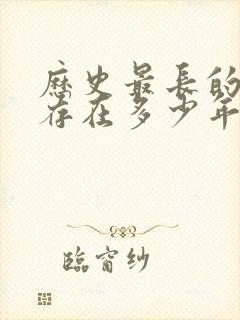 歷史最長的
存在多少年
臨窗紗